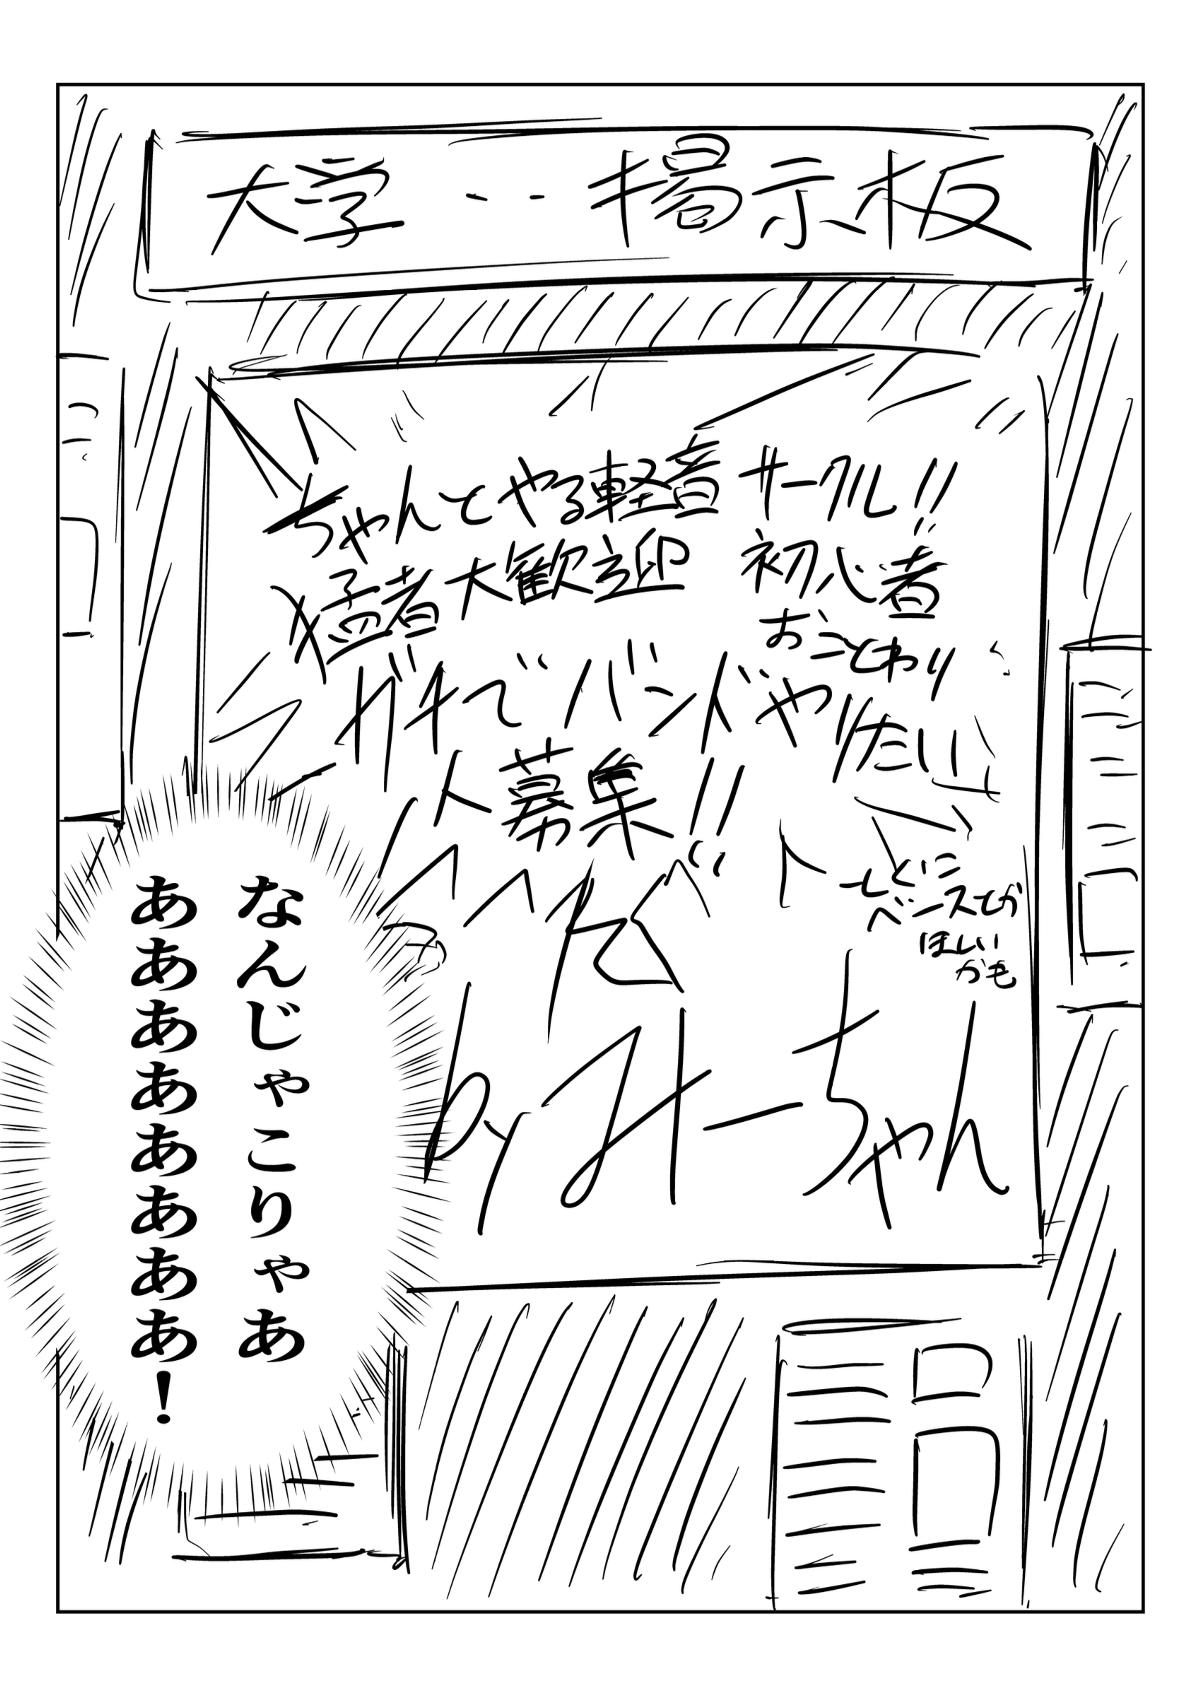 大学‥掲示板
ちゃんとやる軽音サークル!!
猛者大歓迎 初心者
おことわり
ガチでバンドやりたい
人募集!!
とくに
ベースとか
ほしい
かも
by みーちゃん
なんじゃこりゃあ
ああああああああ！